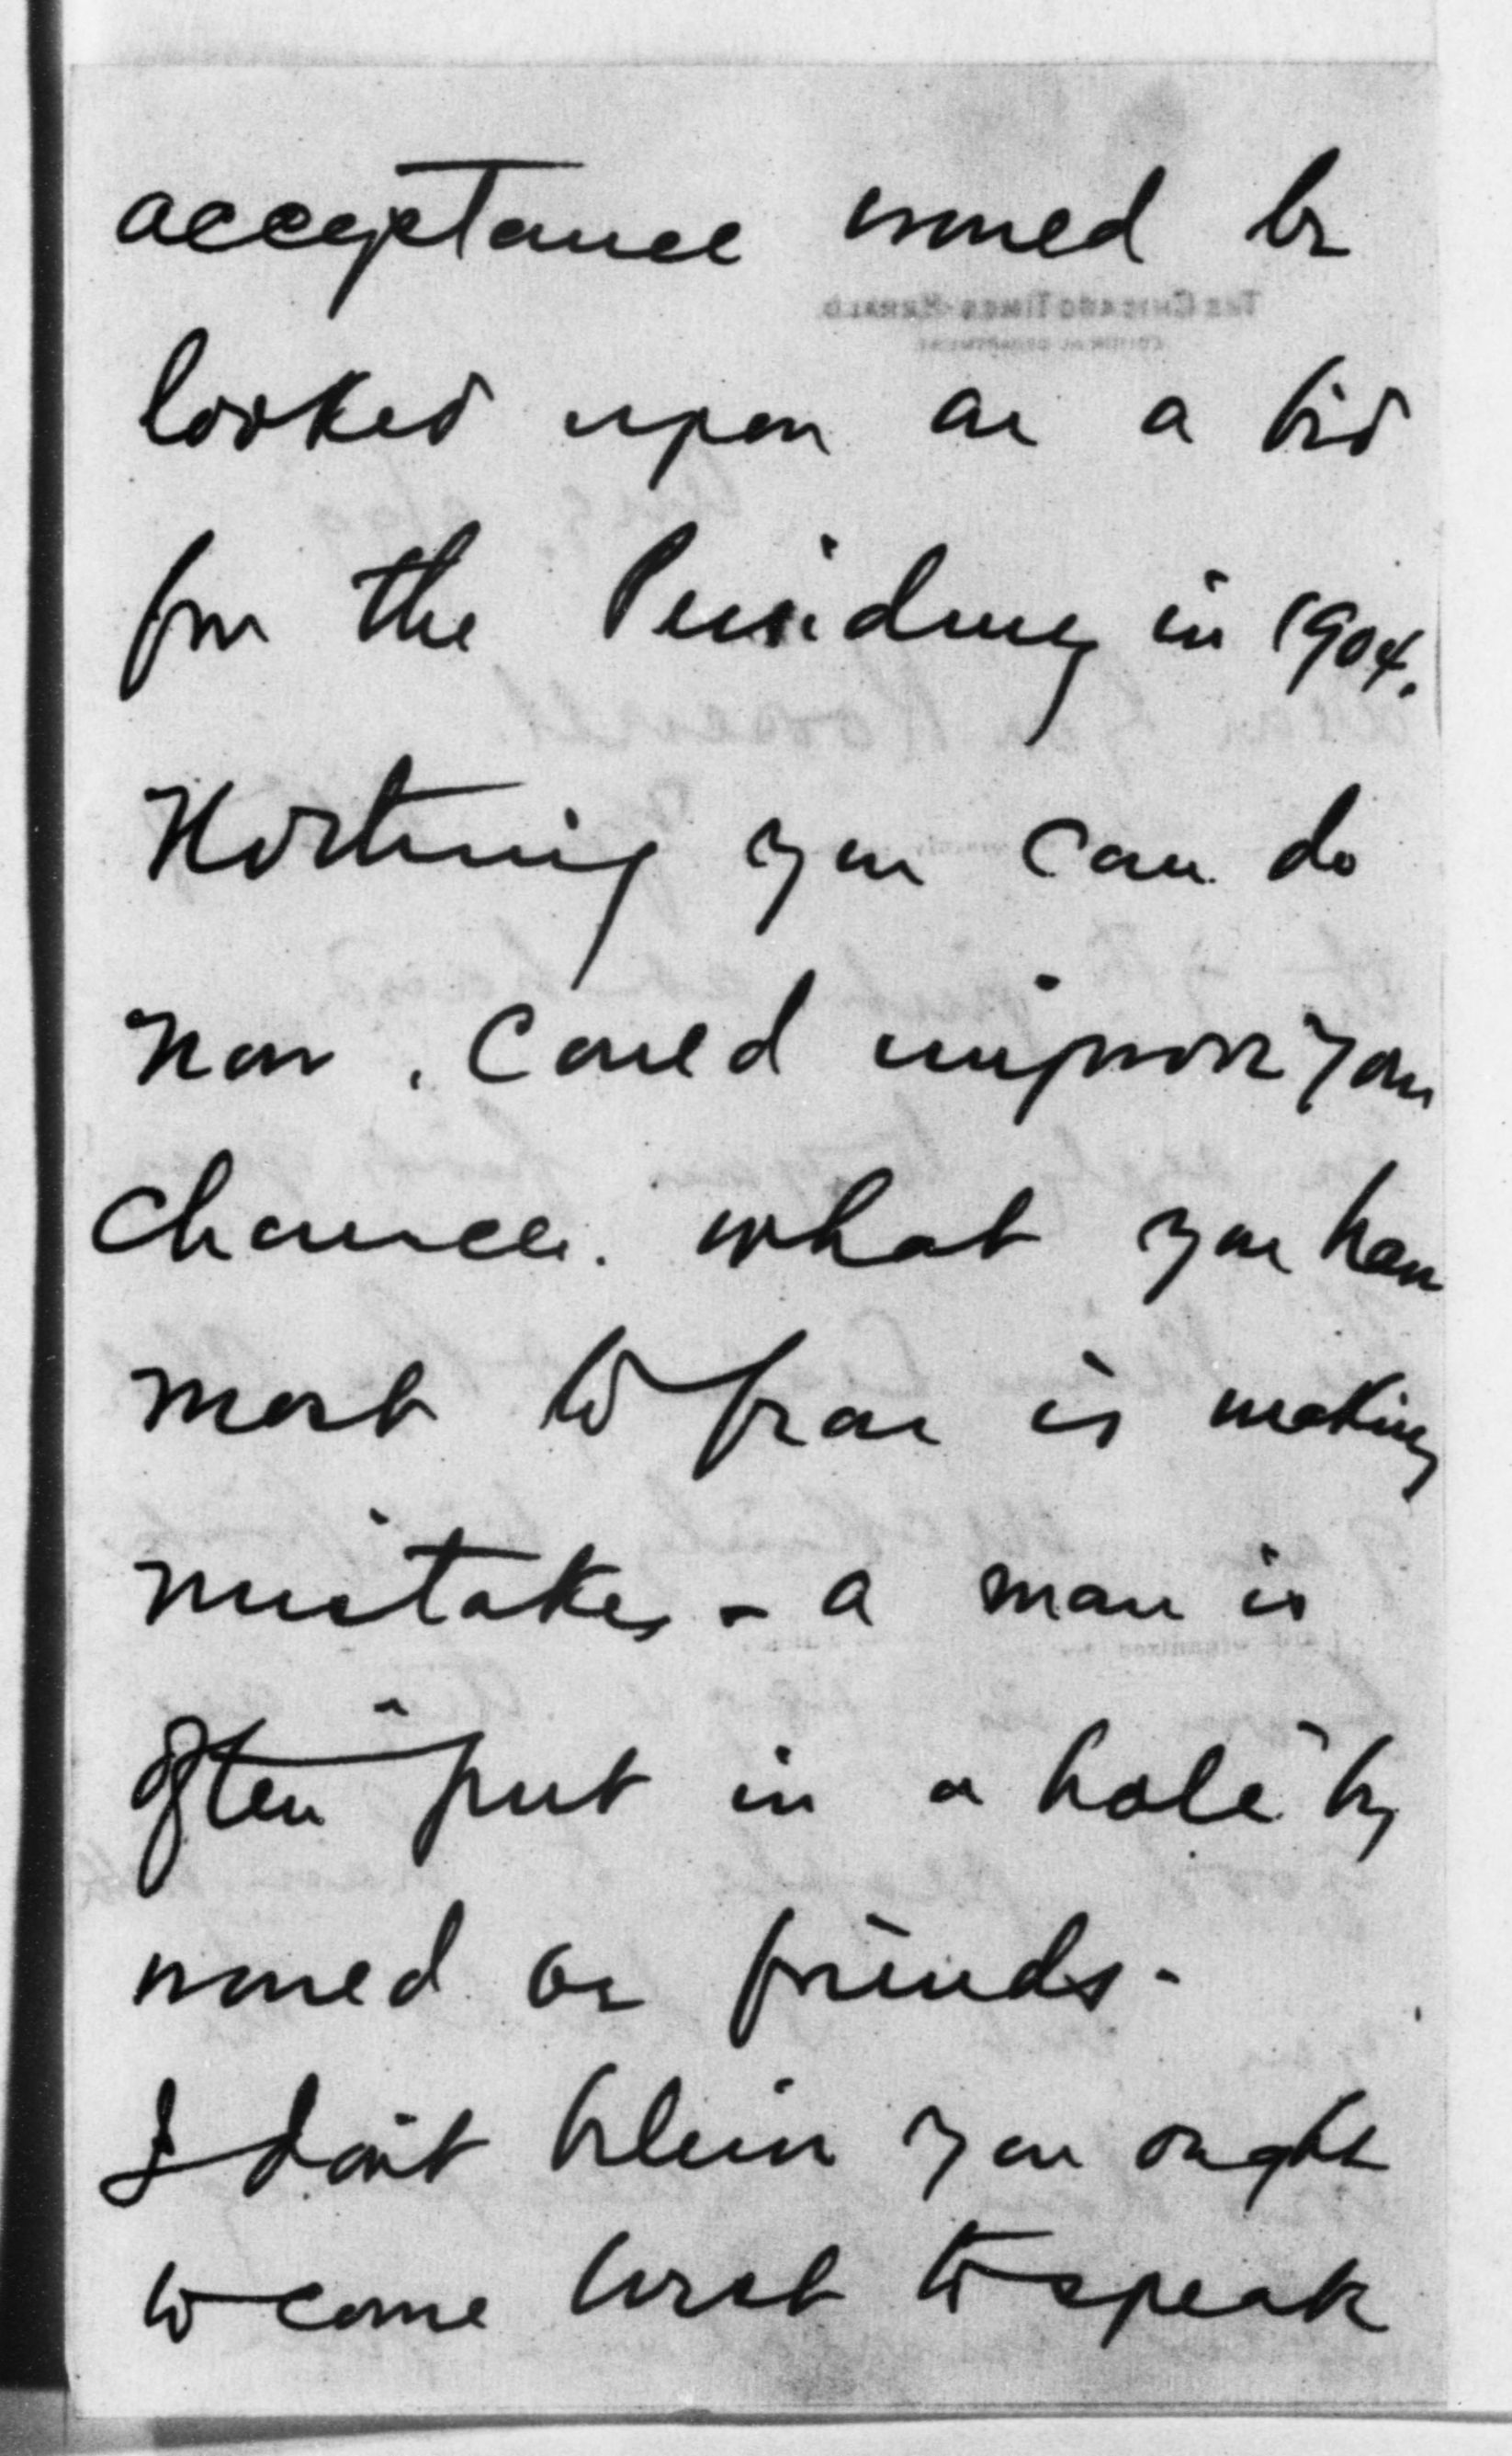 acceptance would be
looked upon as a bid
for the Presidency in 1904.
Nothing you can do
now, could improve your
chances. What you have
most to fear is making
mistakes - a man is
often "put in a hole" by
would be friends.
I don't believe you ought
to come West to speak